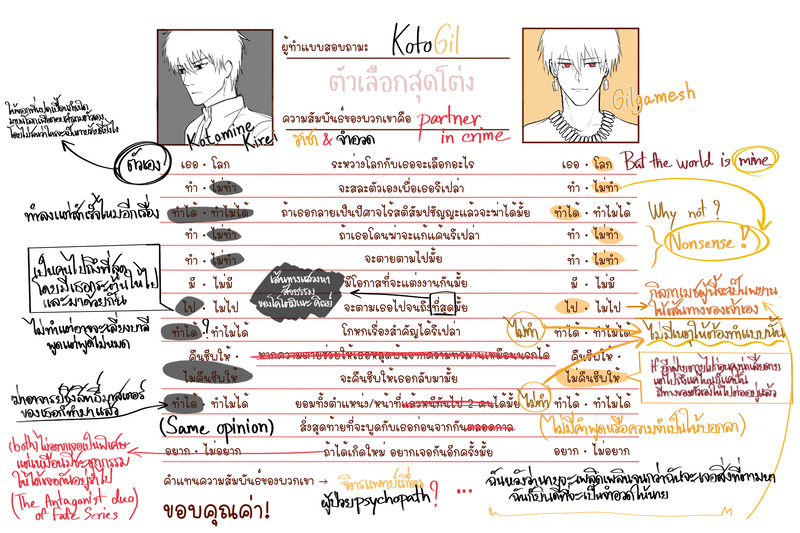 ผู้ทำแบบสอบถามะ KotoGil
ตัวเลือกสุดโต่ง
ความสัมพันธ์ของพวกเขาคือ partner in crime
ราชา & จำอวด
Kotomine Kirei
Gilgamesh
ตัวเอง
เธอ · โลก ระหว่างโลกกับเธอจะเลือกอะไร เธอ · โลก But the world is mine
ทำ · ไม่ทำ จะสละตัวเองเพื่อเธอรึเปล่า ทำ · ไม่ทำ
ทำได้ · ทำไม่ได้ ถ้าเธอกลายเป็นปีศาจไร้สติสัมปชัญญะแล้วจะฆ่าได้มั้ย ทำได้ · ทำไม่ได้ Why not?
ทำ · ไม่ทำ ถ้าเธอโดนฆ่าจะแก้แค้นรึเปล่า ทำ · ไม่ทำ
Nonsense!
ทำ · ไม่ทำ จะตายตามไปมั้ย ทำ · ไม่ทำ
เป็นคนไปถึงที่สุด
โดยมีเธอ
และมาด้วยกัน
มี · ไม่มี มีโอกาสที่จะแต่งงานกันมั้ย มี · ไม่มี
เส้นทางแสวงหา
ของโคโตมิเนะ คิเรย์
ไป · ไม่ไป จะตามเธอไปจนถึงที่สุดมั้ย ไป · ไม่ไป
กิลกาเมชผู้นี้จะเป็นพยาน
ให้เส้นทางของเจ้าเอง
ไม่ทำแต่อาจจะเลี่ยงบาลี
พูดแต่พูดไม่หมด
ทำได้? · ทำไม่ได้ โกหกเรื่องสำคัญได้รึเปล่า ไม่ทำ ทำได้ · ทำไม่ได้ ไม่มีเหตุให้ต้องทำแบบนั้น
คืนชีพให้ · คืนชีพให้ ·
ไม่คืนชีพให้ จะคืนชีพให้เธอกลับมามั้ย ไม่คืนชีพให้
ของเธอก็ทำมาแล้ว
ทำได้ · ทำไม่ได้ ยอมทิ้งตำแหน่ง/หน้าที่แล้วหนีกันไป 2 คนได้มั้ย ไม่ทำ ทำได้ · ทำไม่ได้
(Same opinion) สิ่งสุดท้ายที่จะพูดกับเธอก่อนจากกันตลอดกาล (ไม่มีคำพูดหรือความจำเป็นให้บอกลา)
อยาก · ไม่อยาก ถ้าได้เกิดใหม่ อยากเจอกันอีกครั้งมั้ย อยาก · ไม่อยาก
(both) ไม่อยากเจอเป็นพิเศษ
ให้ได้เจอกันอยู่ร่ำไป
(The Antagonist duo
of Fate Series)
คำแทนความสัมพันธ์ของพวกเขา → จิตรแพทย์เถื่อน
ผู้ป่วย psychopath? ...
ฉันก็ยินดีที่จะเป็นจำอวดให้นาย
ขอบคุณค่า!